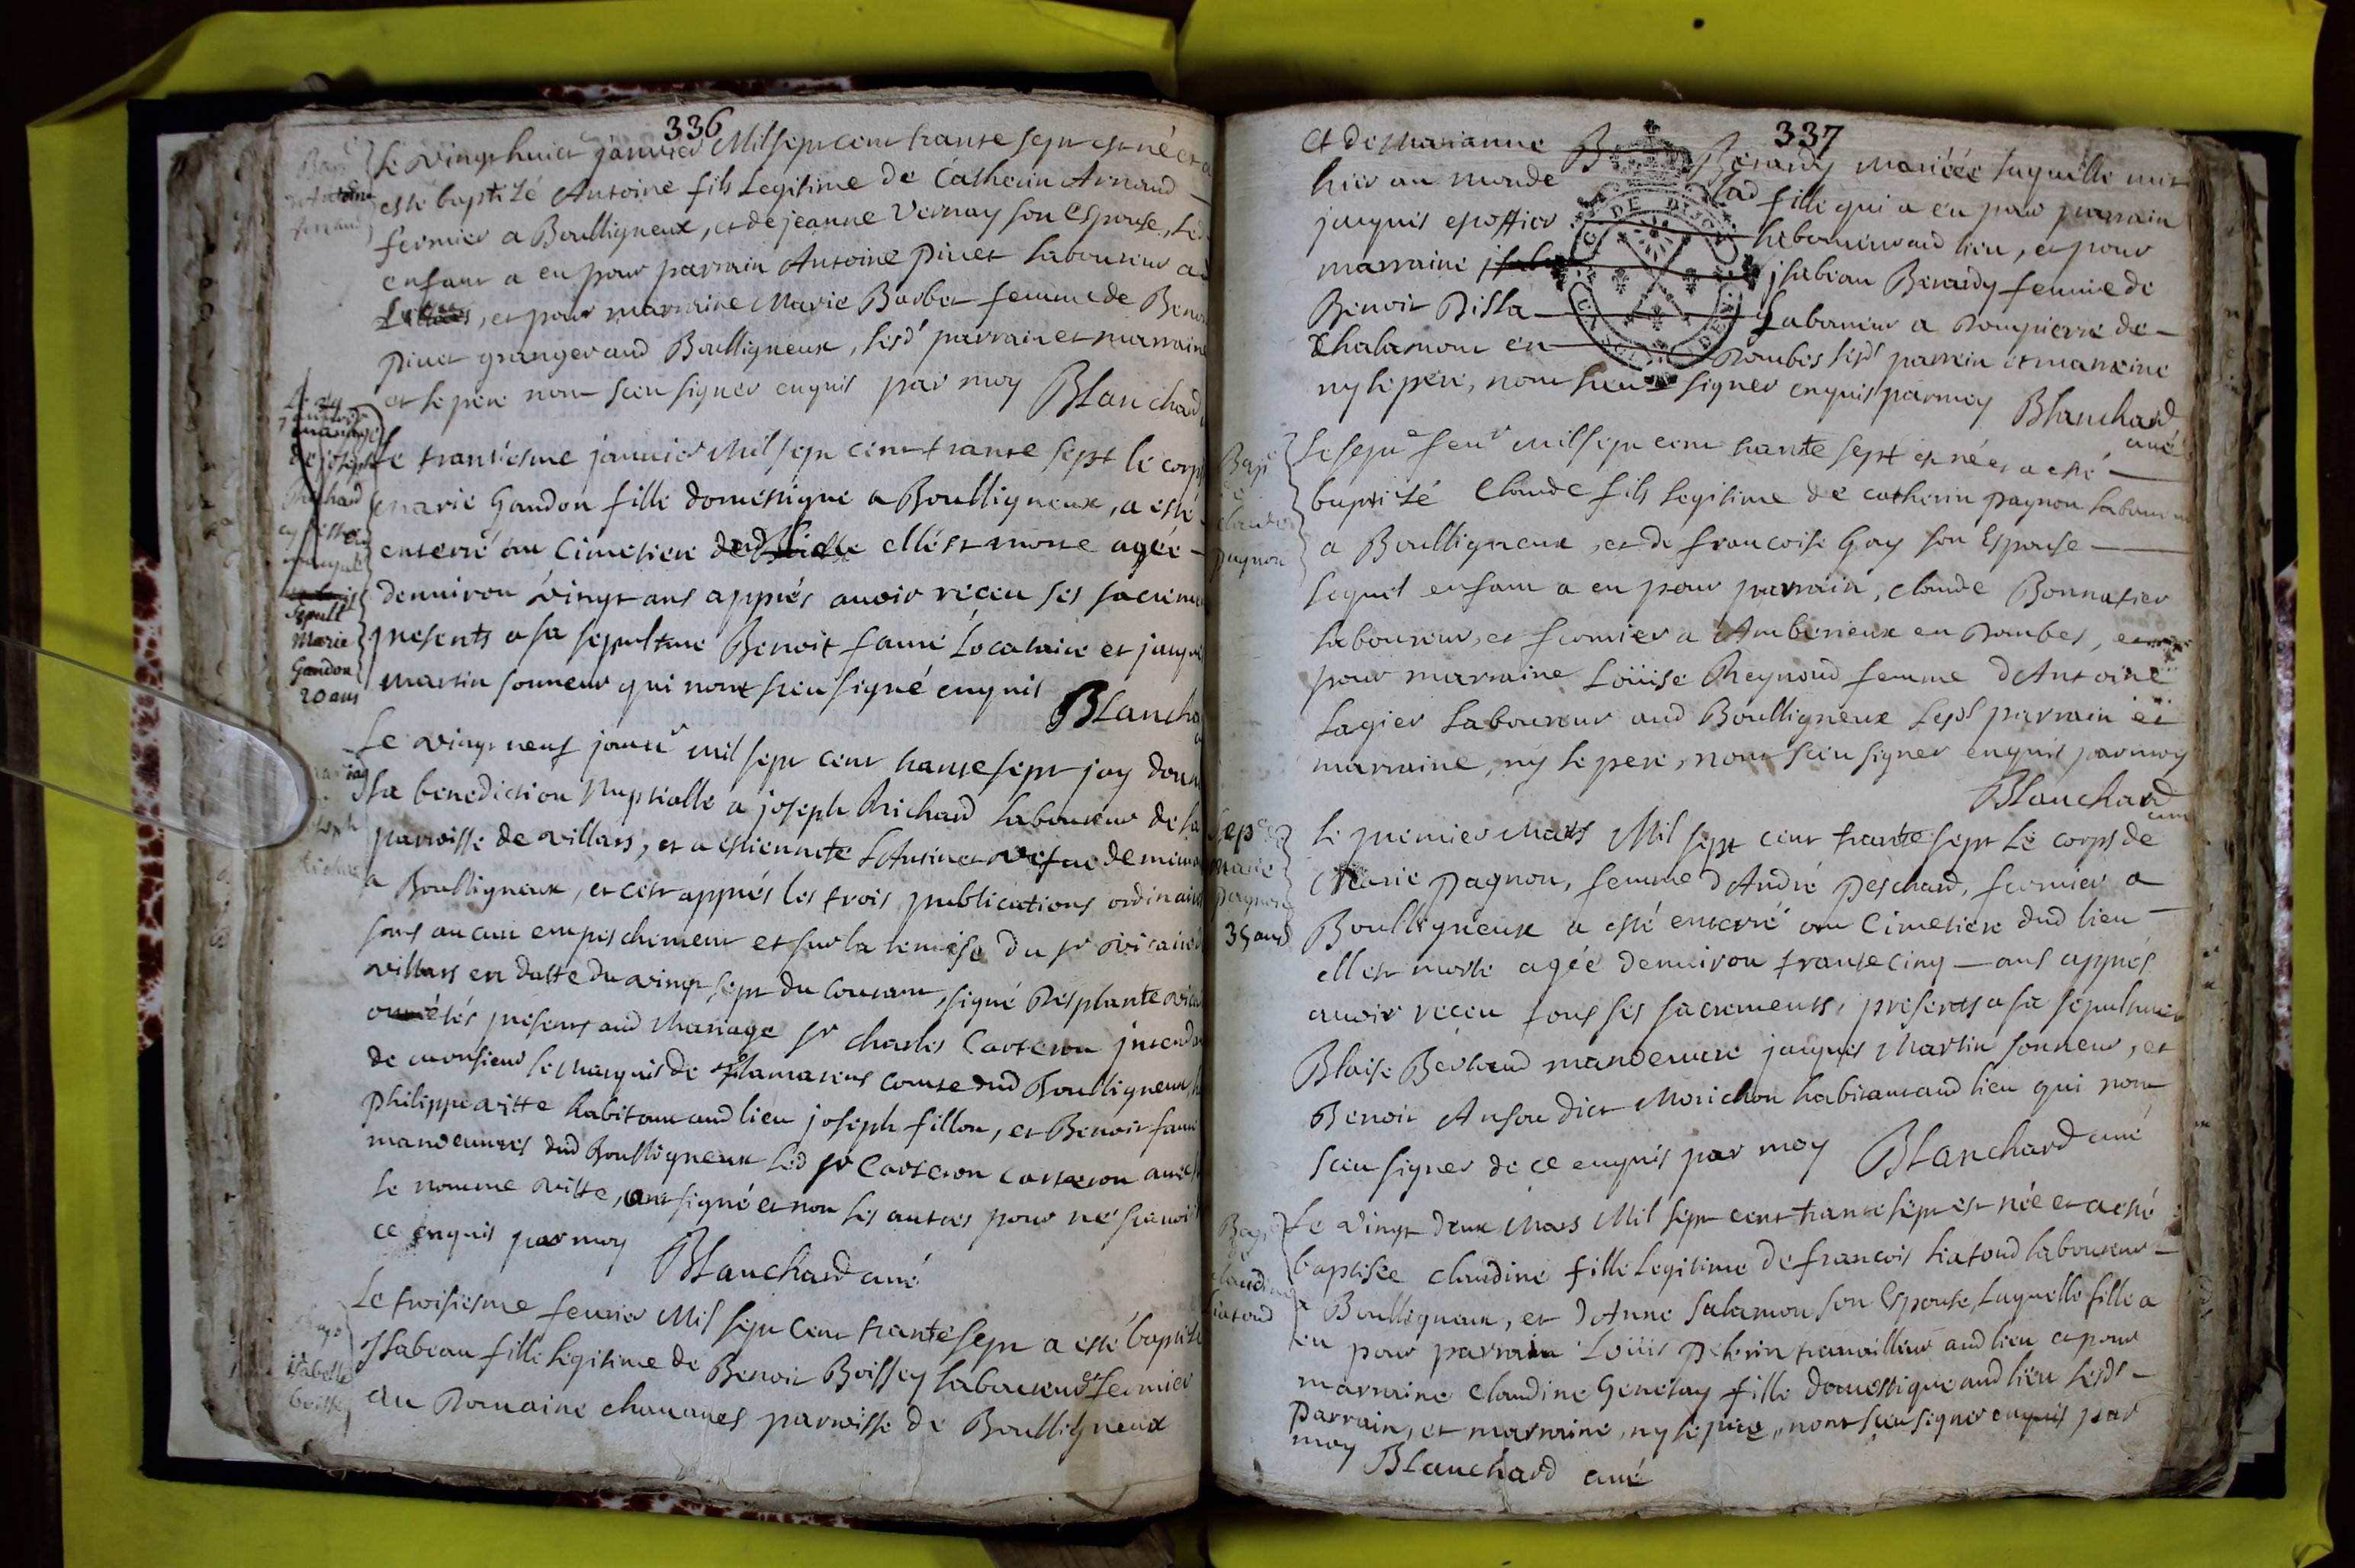 336
Bap
d'Antoine
Arnaud
Le vingt huict janvier Mil sept cent trante sept est né et a
esté baptizé Antoine fils Legitime de Catherin Arnaud
fermier a Boulligneux, et de jeanne Vernay son Espouse, Led
enfant a eu pour parrain Antoine Pinet Laboureur a
et pour marraine Marie Barbet femme de Benoi
Pinet granger aud Boulligneux, Lesd parrain et marraine
et le pere nont sceu signer enquis par moy Blanchard
Le 29
janvier
mariage
de joseph
Richard
cy dessous
Sepult
Marie
Gandon
20 ans
Le trantiesme janvier Mil sept cent trante sept le corps
marie Gandon fille domestique a Boulligneux, a esté
enterré au Cimetiere elle est morte agée
denviron vingt ans appres avoir receu ses sacrem
presents a sa sepulture Benoit famé Locataire et jacque
Martin sonneur qui nont sceu signé enquis
Blancha
mariag
joseph
Richar
Le vingt neuf janvr mil sept cent trante sept jay donn
La benediction Nuptialle a joseph Richard Laboureur de la
parroisse de villars, et a estiennete vefue
a Boulligneux, et cest appres les trois publications ordinair
sans aucun empeschement et sur la remise du sr vicaire d
villars en datte du vingt sept du Courant, signé Desplante vica
presents aud Mariage sr charles Carteron jntend
de monsieur le Marquis de comte dud Boulligneux
Philippe vitte habitant aud lieu joseph fillon, et Benoit famé
manoeuvres dud Boulligneux Led sr Carteron Carteron avec
le nomme vitte, ont signé et non les autres pour ne scavoir
ce enquis par moy Blanchard curé
Bap
isabelle
boissey
Le troisiesme fevrier Mil sept Cent trante sept a esté baptisé
Isabeau fille legitime de Benoit Boissey laboureur et fermier
au Domaine chavanes parroisse de Boulligneux
337
Et de Marianne B Berardy mariéé laquelle mit
hier au monde lad fille qui a eu pour parrain
jacques epoffier laboureur aud lieu, et pour
marraine jsabeau Berardy femme de
Benoit Pilla Laboureur a Dompierre de
Chalamont en Dombes lesd parrein et marreine
ny le pere, nont sceu signer enquis par moy Blanchard
curé
Bap
claude
pagnon
Le sept fevr mil sept cent trante sept est né et a esté
baptizé Claude fils legitime de catherin pagnon laboureur
a Boulligneux, et de francoise Gay son Espouse
lequel enfant a eu pour parrain, claude Bonnatier
laboureur, et fermier a Amberieux en Dombes, et
pour marraine Loüise Reynoud femme dAntoine
Lagier Laboureur aud Boulligneux Lesd parrain et
marraine, ny le pere, nont sceu signer enquis par moy
Blanchard
curé
Sep
marie
pagnon
35 ans
Le premier Mars Mil sept cent trante sept le corps de
Marie Pagnon, femme dAndré Peschard, fermier a
Boulligneux a esté enterré au Cimetiere dud lieu
ell est morte agée denviron trante cinq ans appres
avoir receu tous ses sacrements, presents a sa sepulture
Blaise Berloud manoeuvre jacques Martin sonneur, et
Benoit Anson dict Morichon habitant aud lieu qui nont
sceu signer de ce enquis par moy Blanchard curé
Bap
claudine
Liatoud
Le vingt deux Mars Mil sept cent trante sept est née et a esté
baptisée claudine fille Legitime de francois Liatoud laboureur
a Boulligneux, et dAnne Salamon son Espouse, Laquelle fille a
eu pour parrain Loüis Pelerin travailleur aud lieu et pour
marraine claudine Genetay fille domestique aud lieu Lesd
Parrain, et marraine, ny le pere, nont sceu signer enquis par
moy Blanchard curé